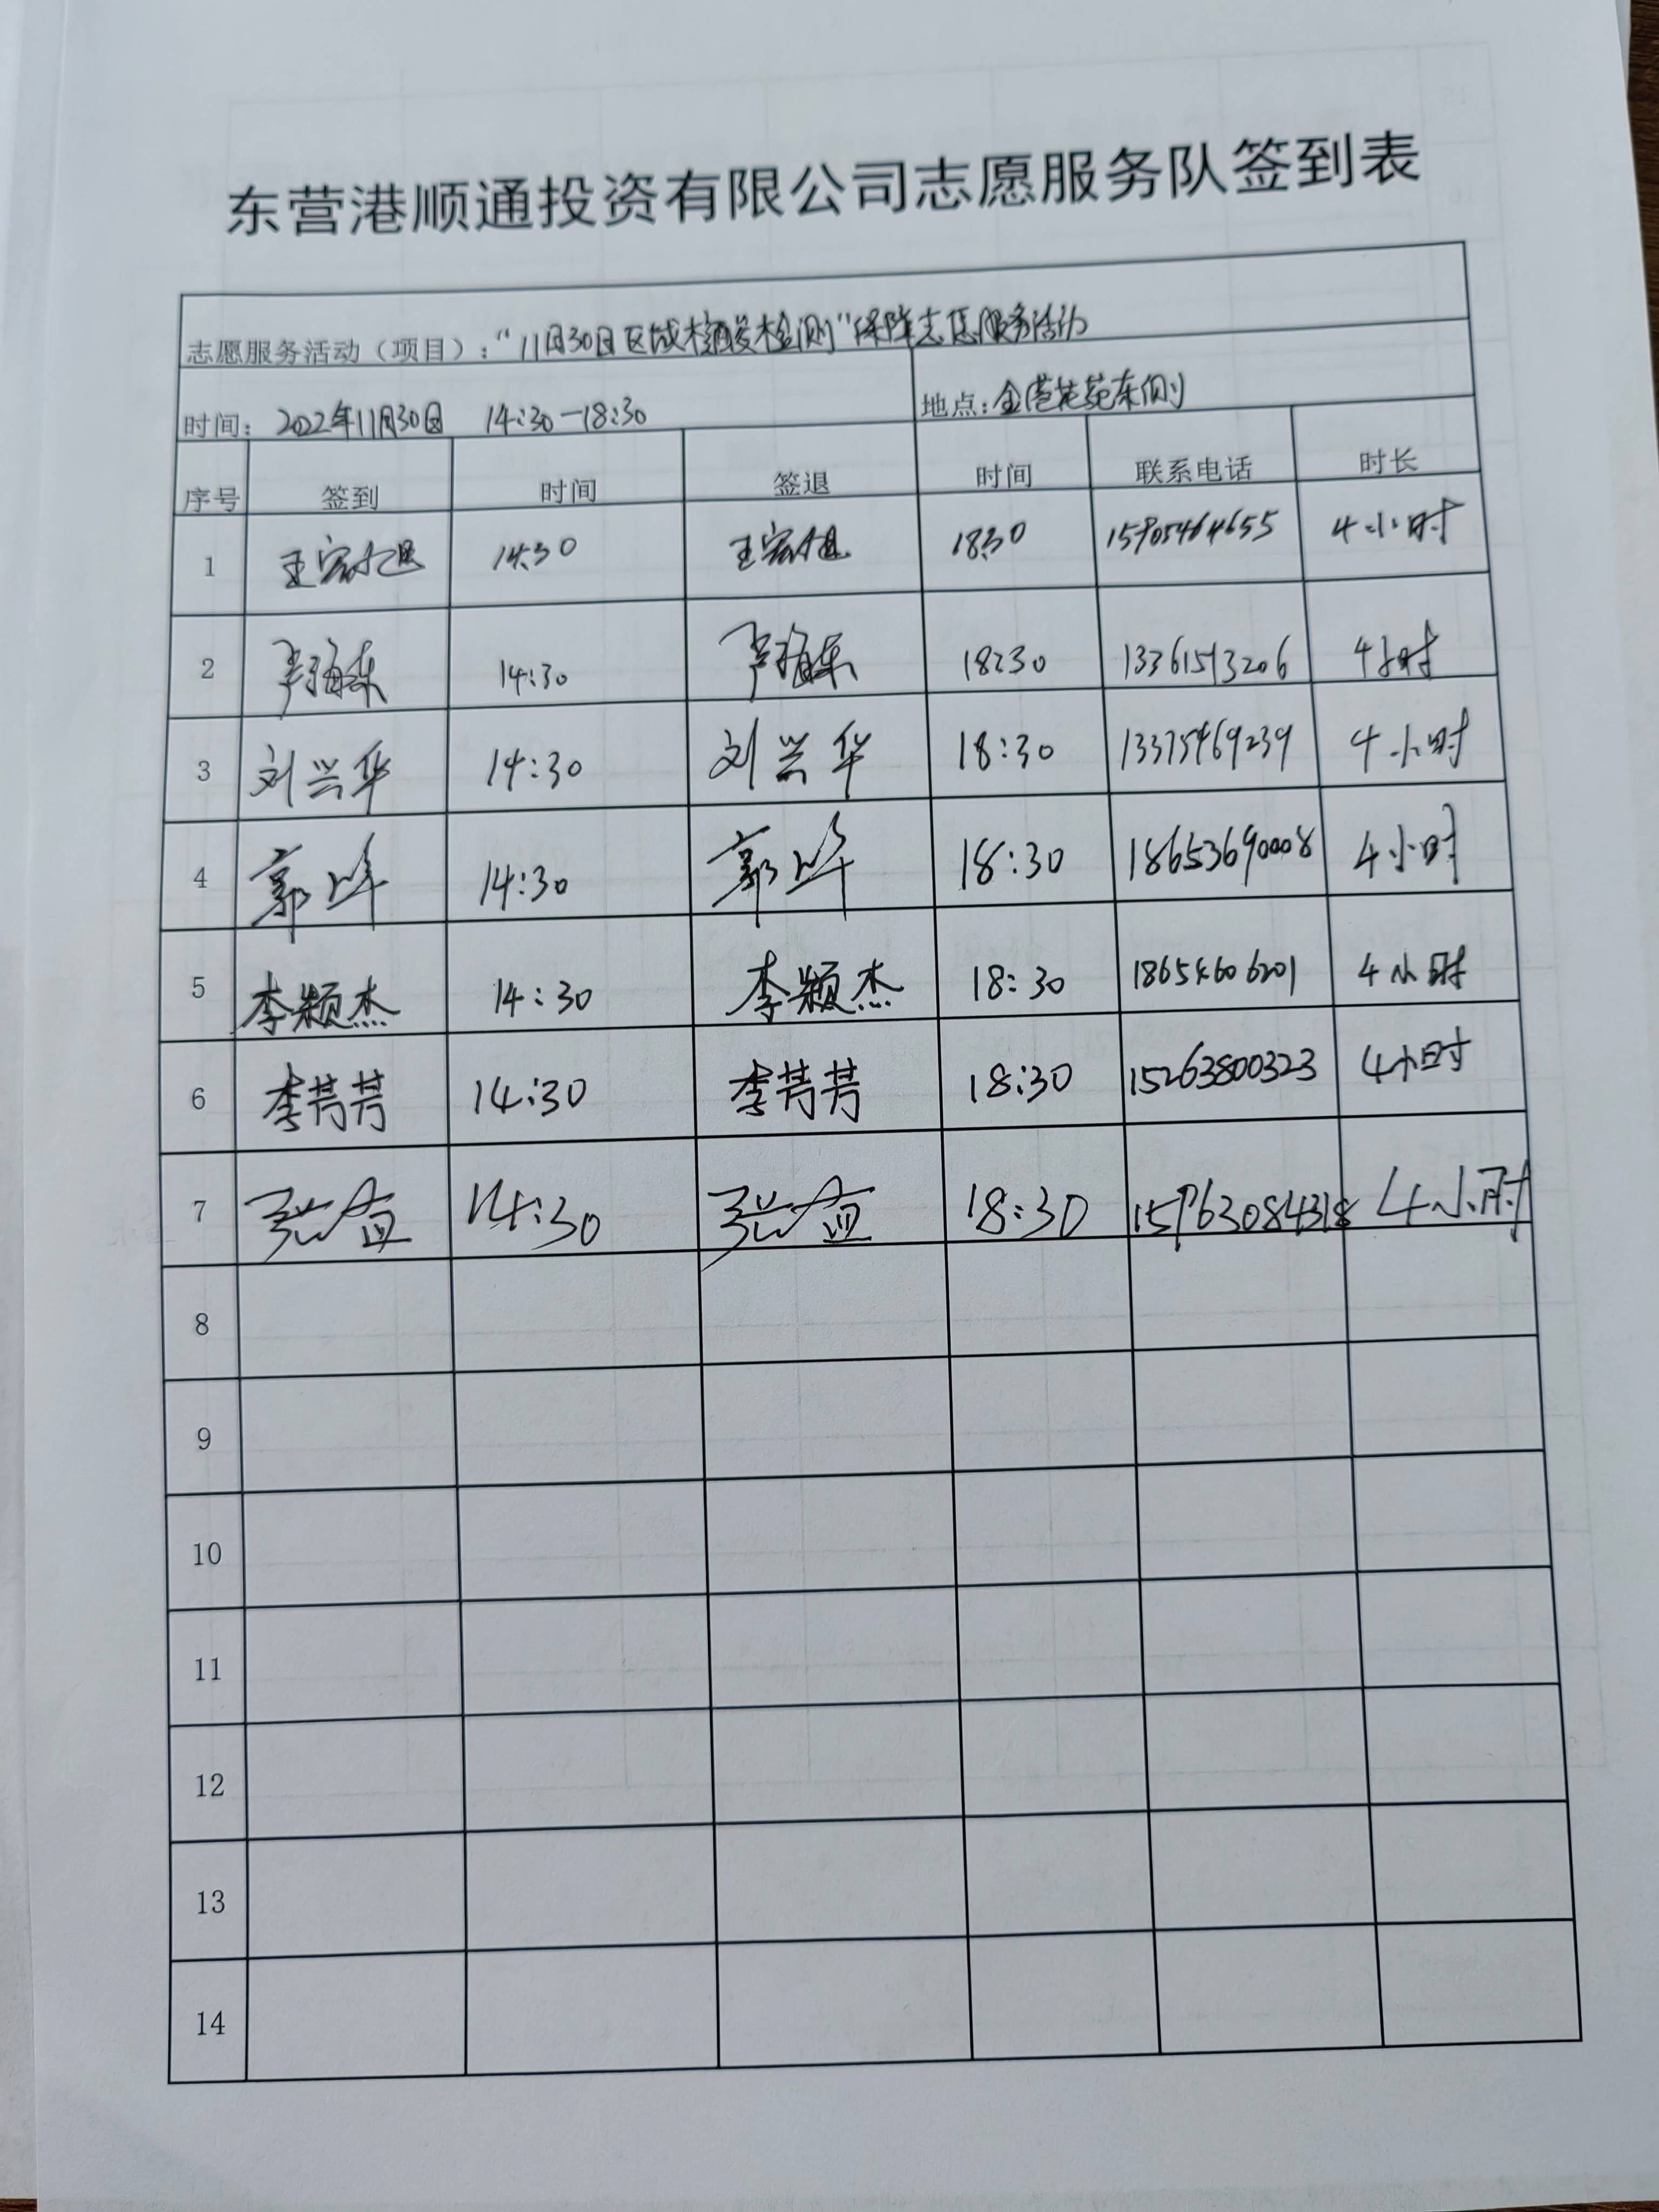 东营港顺通投资有限公司志愿服务队签到表
志愿服务活动（项目）：“11月30日区域核酸检测”保障志愿服务活动
时间： 2022年11月30日 14:30-18:30 地点：金港花苑东侧
序号 签到 时间 签退 时间 联系电话 时长
1 王 14:30 王 18:30 15905464655 4小时
2 严海东 14:30 严海东 18:30 13361513206 4小时
3 刘兴华 14:30 刘兴华 18:30 13375469239 4小时
4 郭峰 14:30 郭峰 18:30 18653690008 4小时
5 李颖杰 14:30 李颖杰 18:30 18654606201 4小时
6 李芳芳 14:30 李芳芳 18:30 15263800323 4小时
7 张益 14:30 张益 18:30 4小时
8
9
10
11
12
13
14